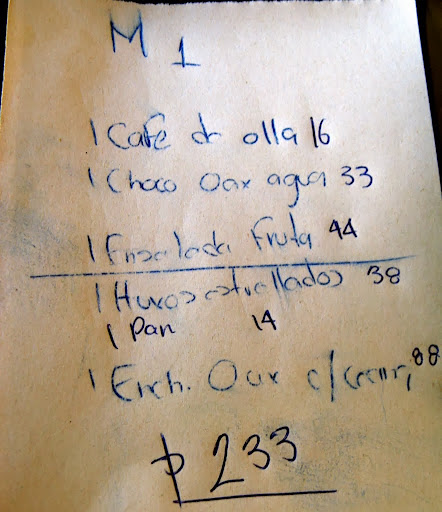 M 1
1 Café de olla 16
1 Choco Oax agua 33
1 Ensalada Fruta 44
1 Huevos estrellados 38
1 Pan 14
1 Ench. Oax c/crema 88
$ 233